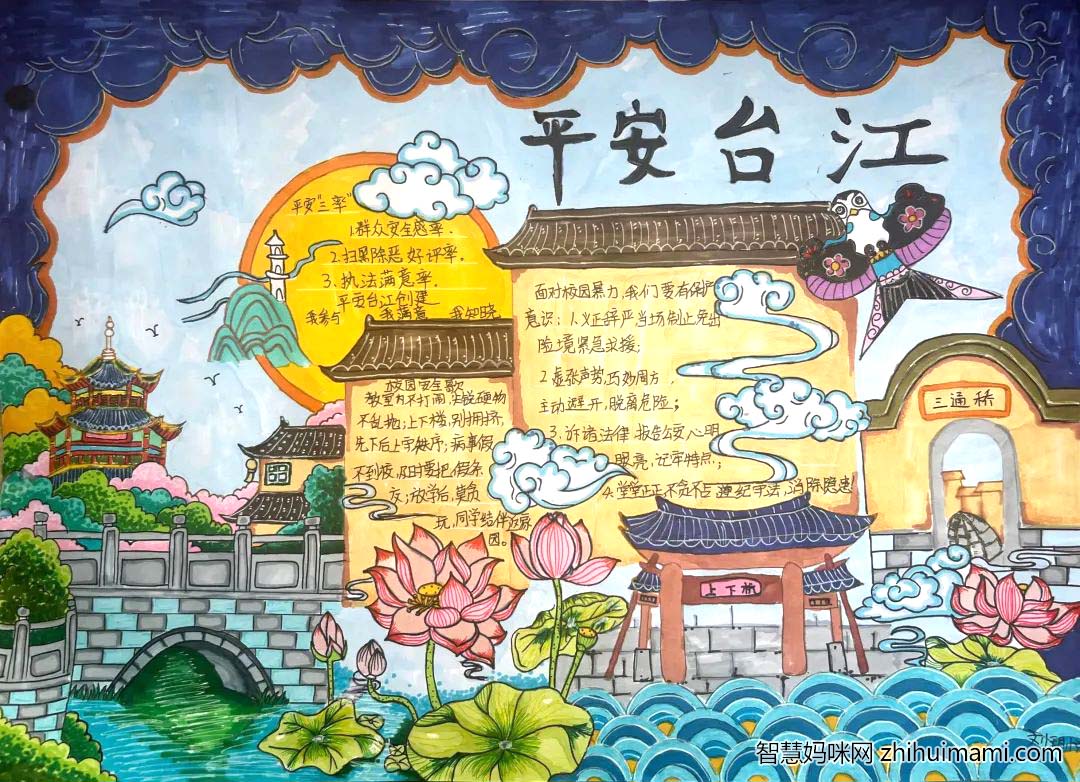 平安台江
平安"三率"
1.群众安全感率.
2.扫黑除恶好评率.
3.执法满意率.
平安台江创建
我参与 我满意 我知晓
校园安全歌
教室内不打闹,尖锐硬物
不乱抛;上下楼,别拥挤,
先下后上守秩序;病事假
不到校,及时要把假条
交;放学后,莫贪
玩,同学结伴返家
园。
面对校园暴力,我们要有保护
意识:1.义正辞严当场制止免出
险境紧急求援;
2.虚张声势,巧妙周方,
主动避开,脱离危险;
3.诉诸法律 报告公安心明
眼亮,记牢特点;
4.堂堂正正 不贪不占 遵纪守法,消除隐患
三通桥
上下杭
智慧妈咪网 zhihuimami.com